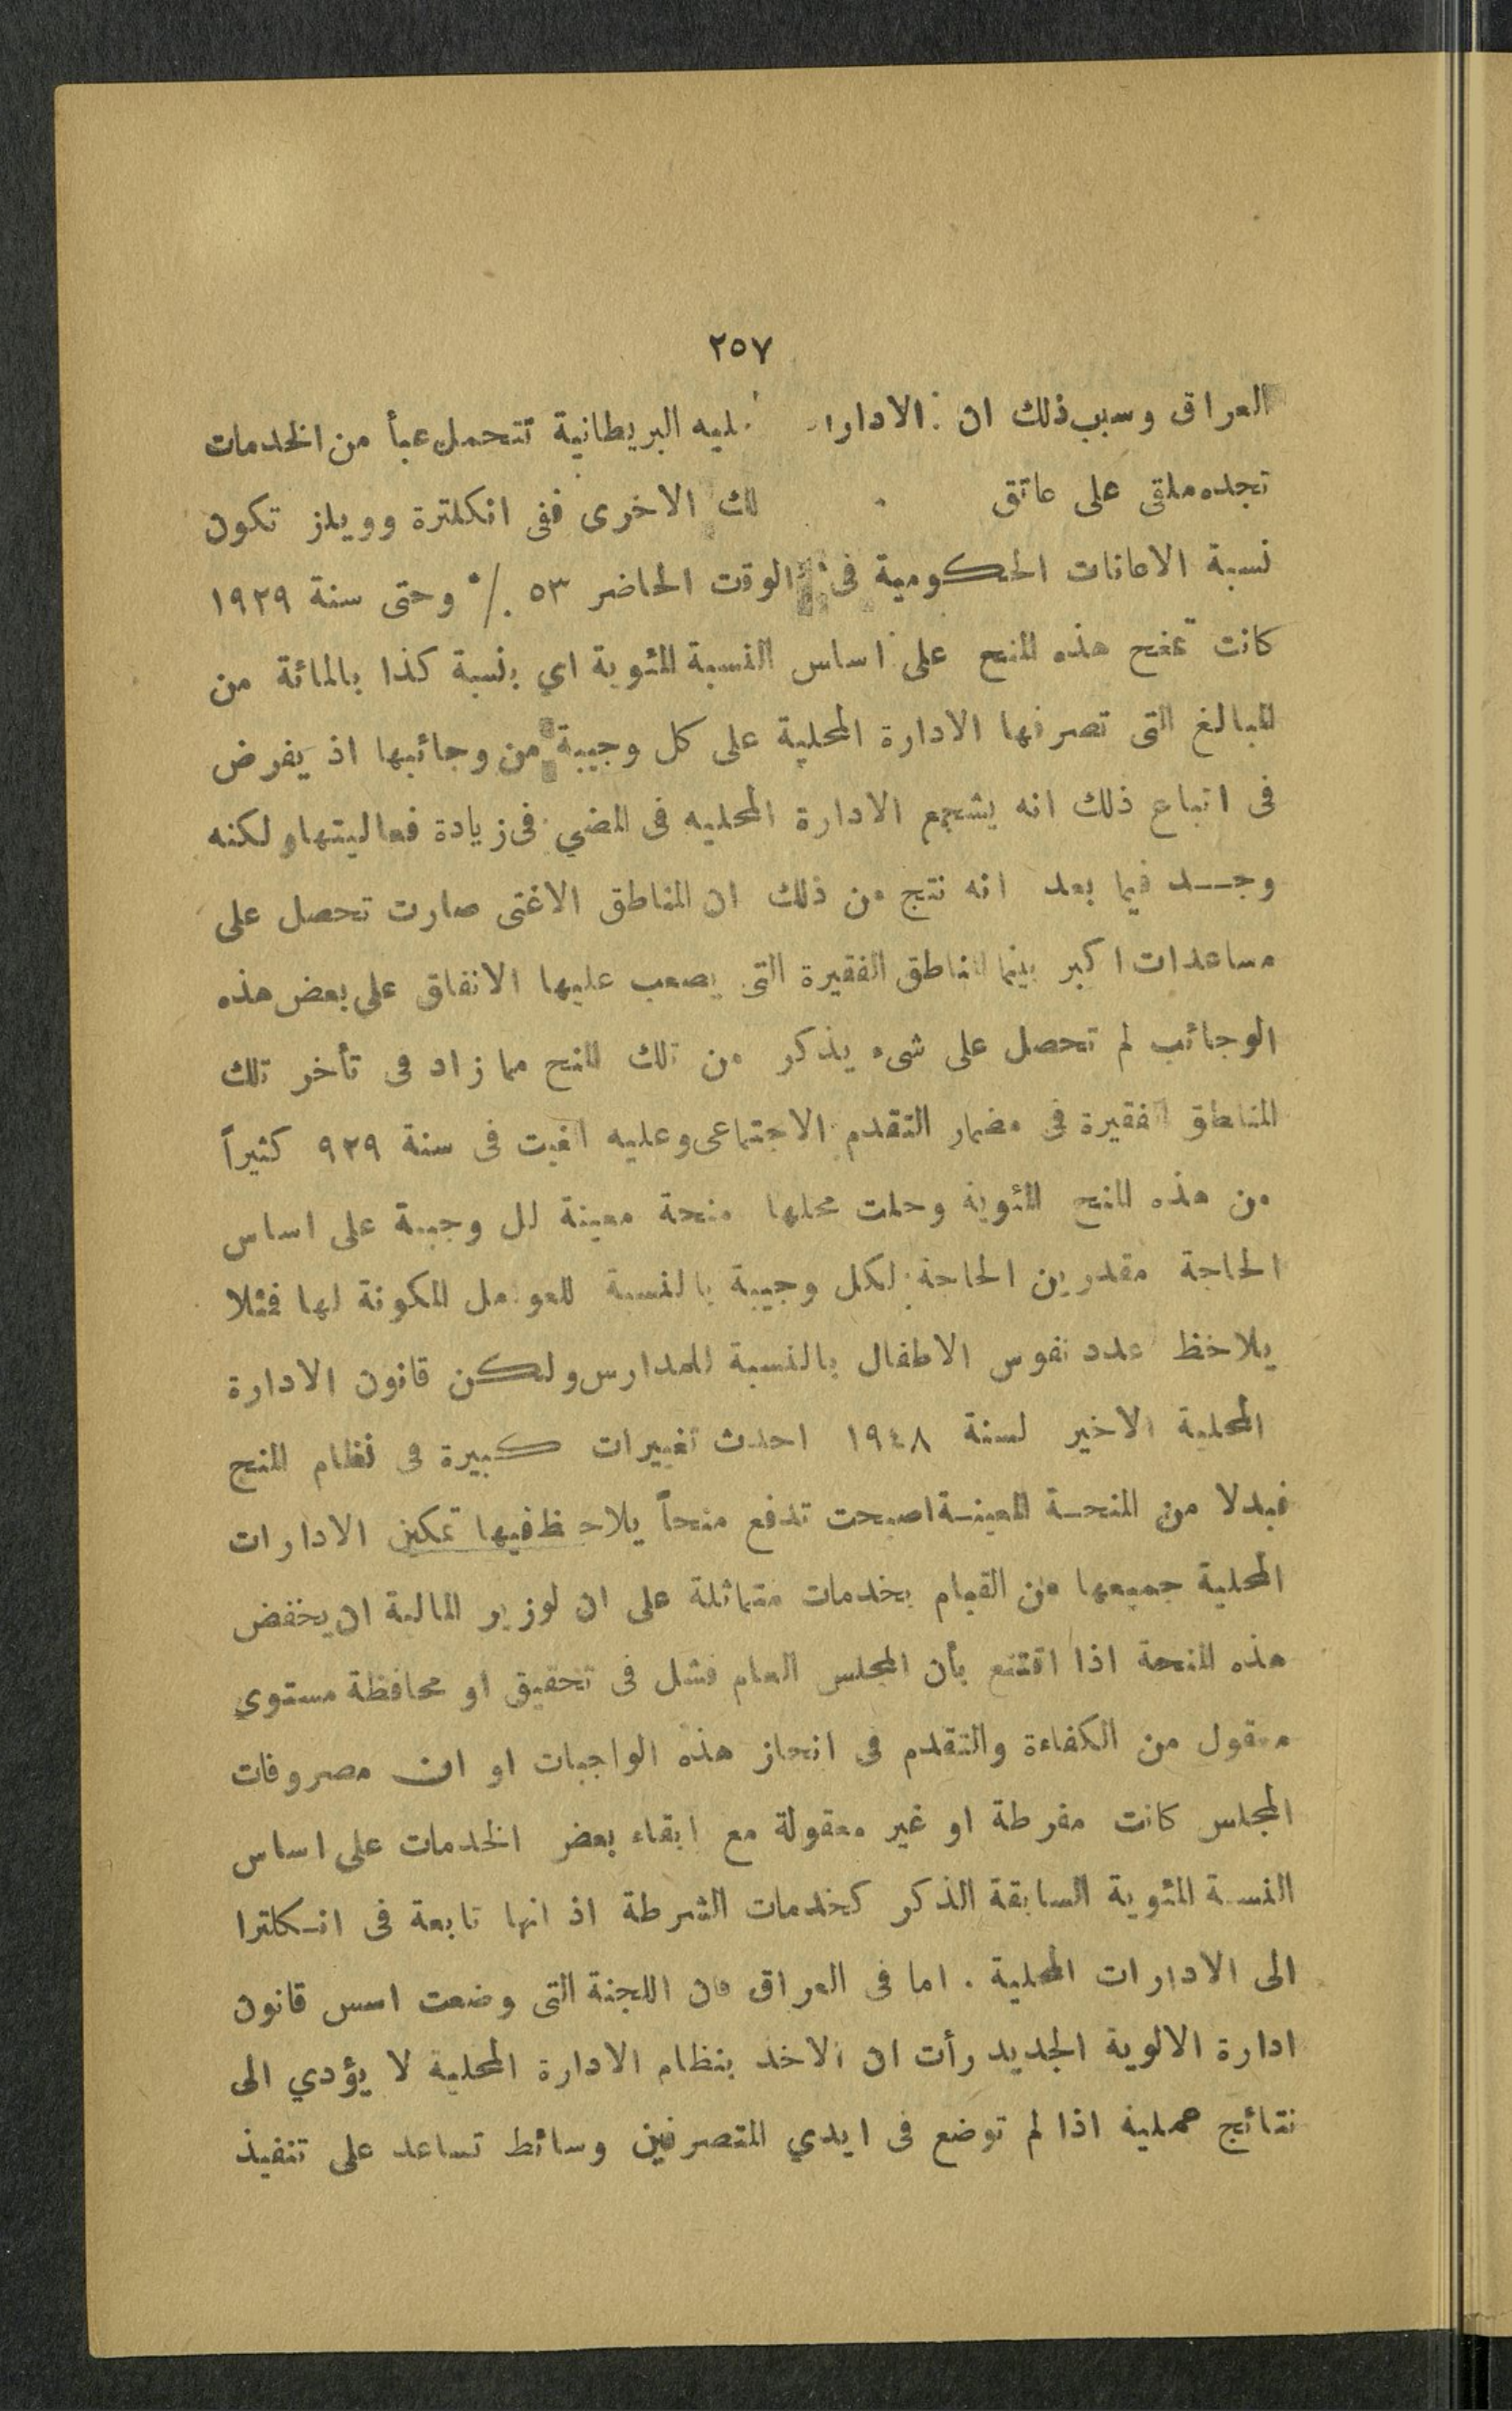 ٢٥٧
العراق وسبب ذلك ان البريطانية تتحمل عبأ من الخدمات
تجده ملقى على عاتق الاخرى ففى انكلترة وويلز تكون
نسبة الاعانات الحكومية فى الوقت الحاضر ٥٣ ./° وحتى سنة ١٩٢٩
كانت تمنح هذه المنح على اساس النسبة المئوية اي بنسبة كذا بالمائة من
المبالغ التى تصرفها الادارة المحلية على كل وجيبة من وجائبها اذ يفرض
فى اتباع ذلك انه يشجع الادارة المحليه فى المضي فى زيادة فعاليتها ولكنه
وجد فيما بعد انه نتج من ذلك ان المناطق الاغنى صارت تحصل على
مساعدات اكبر بينما المناطق الفقيرة التى يصعب عليها الانفاق على بعض هذه
الوجائب لم تحصل على شىء يذكر من تلك المنح مما زاد فى تأخر تلك
المناطق الفقيرة فى مضمار التقدم الاجتماعى وعليه الغيت فى سنة ٩٢٩ كثيراً
من هذه المنح المئوية وحلت محلها منحة معينة لكل وجيبة على اساس
الحاجة مقدرين الحاجة لكل وجيبة بالنسبة للعوامل المكونة لها فمثلا
يلاحظ عدد نفوس الاطفال بالنسبة للمدارس ولكن قانون الادارة
المحلية الاخير لسنة ١٩٤٨ احدث تغييرات كبيرة فى نظام المنح
فبدلا من المنحة المعينة اصبحت تدفع منحاً يلاحظ فيها تمكين الادارات
المحلية جميعها من القيام بخدمات متماثلة على ان لوزير المالية ان يخفض
هذه المنحة اذا اقتنع بأن المجلس العام فشل فى تحقيق او محافظة مستوى
معقول من الكفاءة والتقدم فى انجاز هذه الواجبات او ان مصروفات
المجلس كانت مفرطة او غير معقولة مع ابقاء بعض الخدمات على اساس
النسبة المئوية السابقة الذكر كخدمات الشرطة اذ انها تابعة فى انكلترا
الى الادارات المحلية . اما فى العراق فان اللجنة التى وضعت اسس قانون
ادارة الالوية الجديد رأت ان الاخذ بنظام الادارة المحلية لا يؤدي الى
نتائج عملية اذا لم توضع فى ايدي المتصرفين وسائط تساعد على تنفيذ